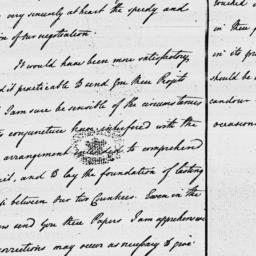 very sincerely at heart the speedy and
of our negotiation.
It would have been more satisfactory,
it practicable to send You these Projets
I am sure be sensible of the circumstances
conjuncture have interfered with the
arrangement intended to comprehend
and to lay the foundation of lasting
between Our two Countries. Even in the
send You these Papers I am apprehensive
corrections may occur as necessary to
touched
in these
in its
should be
candour
occasion